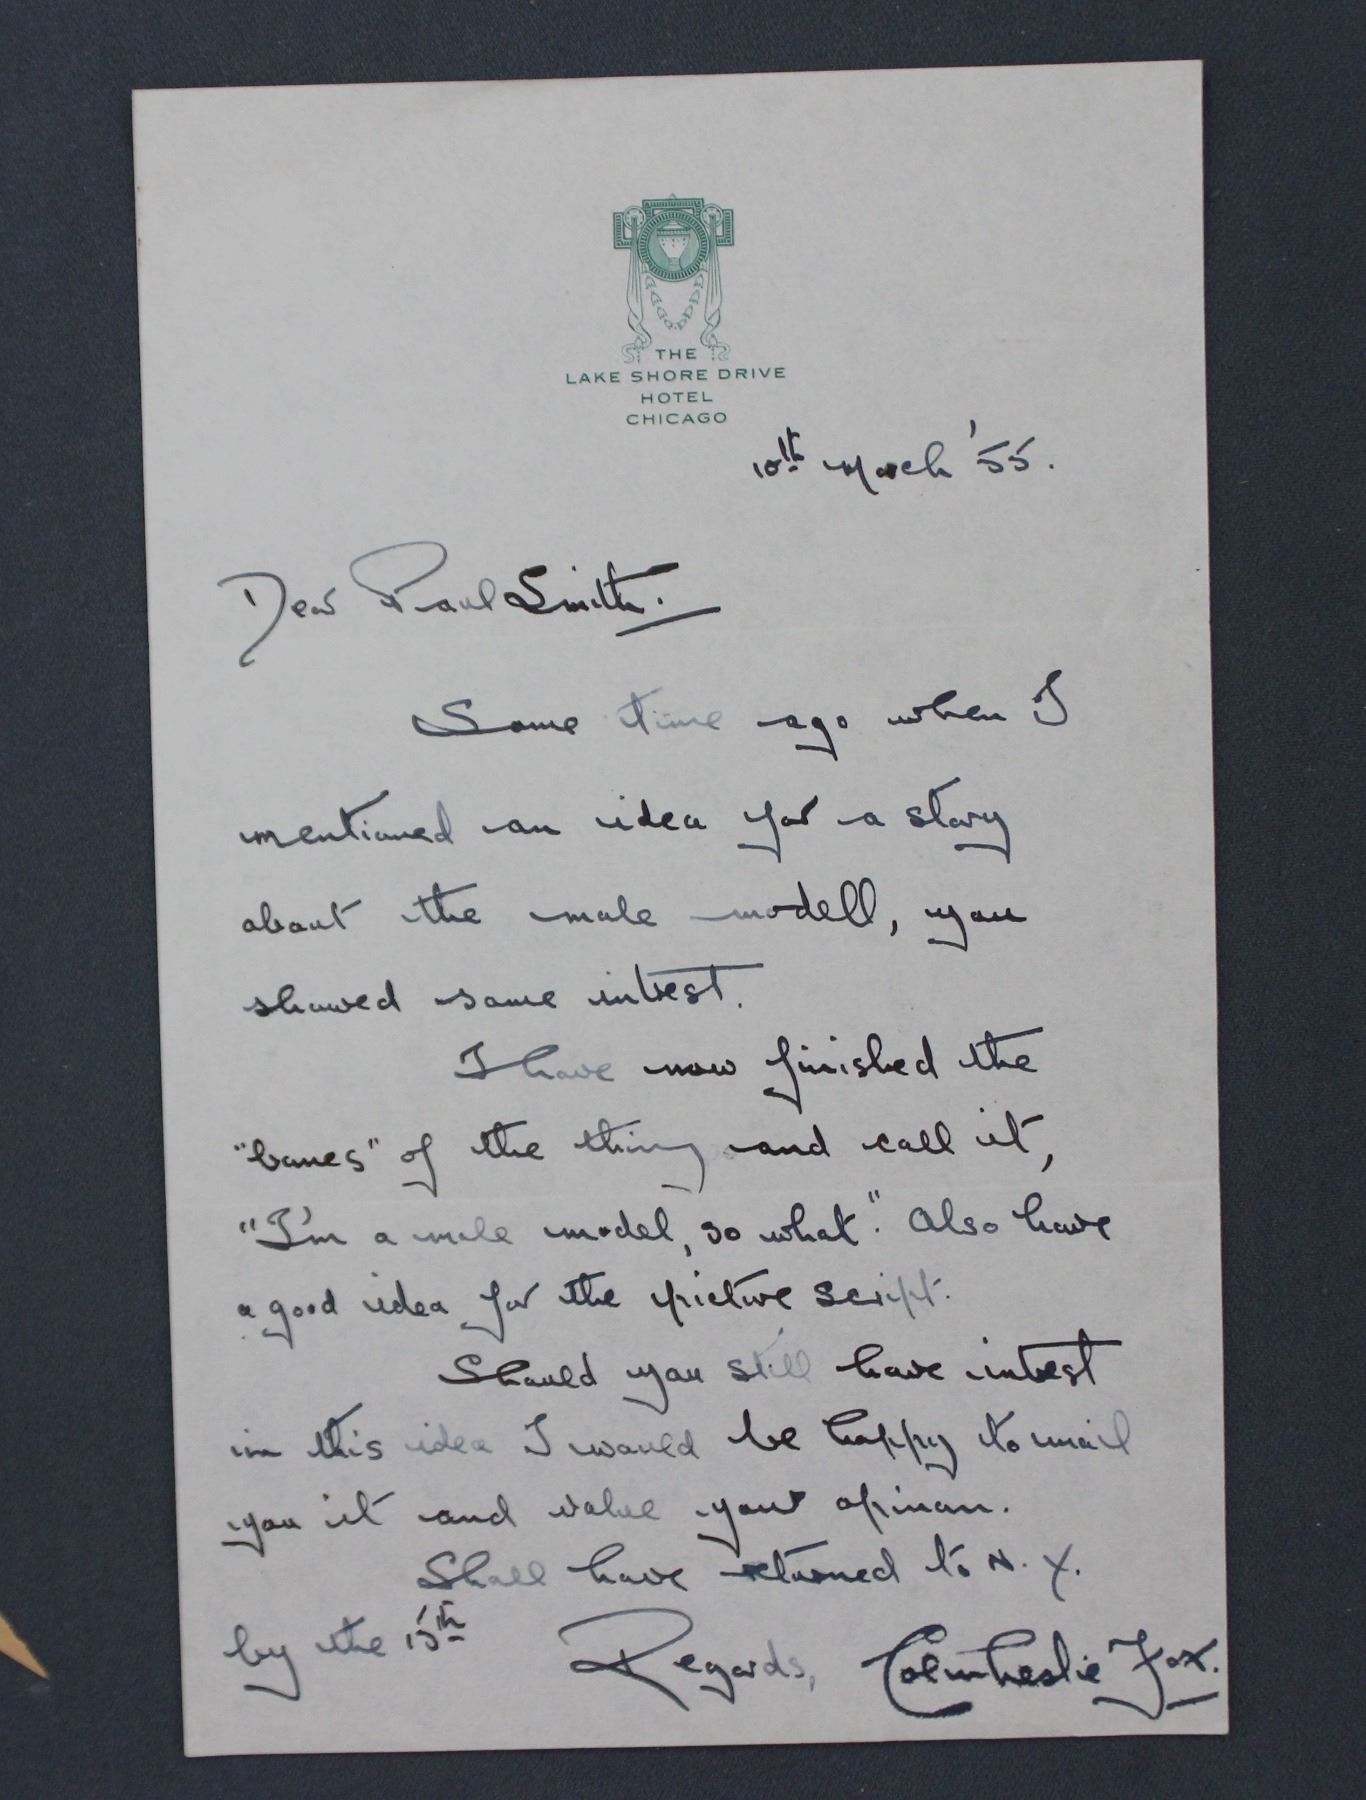 THE
LAKE SHORE DRIVE
HOTEL
CHICAGO
10th March '55.
Dear Paul Smith.
Some time ago when I
mentioned an idea for a story
about the male modell, you
showed some intrest.
I have now finished the
"bones" of the thing and call it,
"I'm a male model, so what". Also have
a good idea for the picture script.
Should you still have intrest
in this idea I would be happy to mail
you it and value your opinon.
Shall have returned to N.Y.
by the 15th Regards, Colin Leslie Fox.